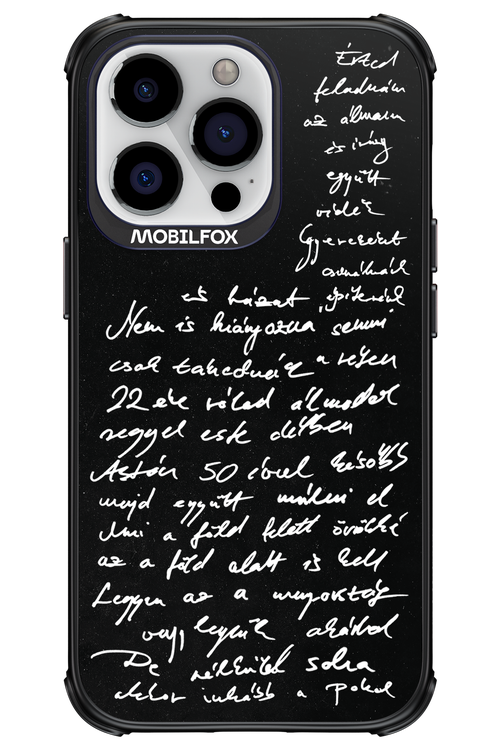 Érted
feladnám
az álmaim
és irány
együtt
vidék
Gyerekeket
csinálnánk
MOBILFOX
és házat építenénk
Nem is hiányozna semmi
csak takednéz a része
22 éve rólad álmodok
reggel este délben
Aztán 50 évvel később
majd együtt múlni el
Ami a föld felett örökké
az a föld alatt is kell
Legyen az a mennyország
vagy legyünk akárhol
De nélküled soha
akkor inkább a pokol